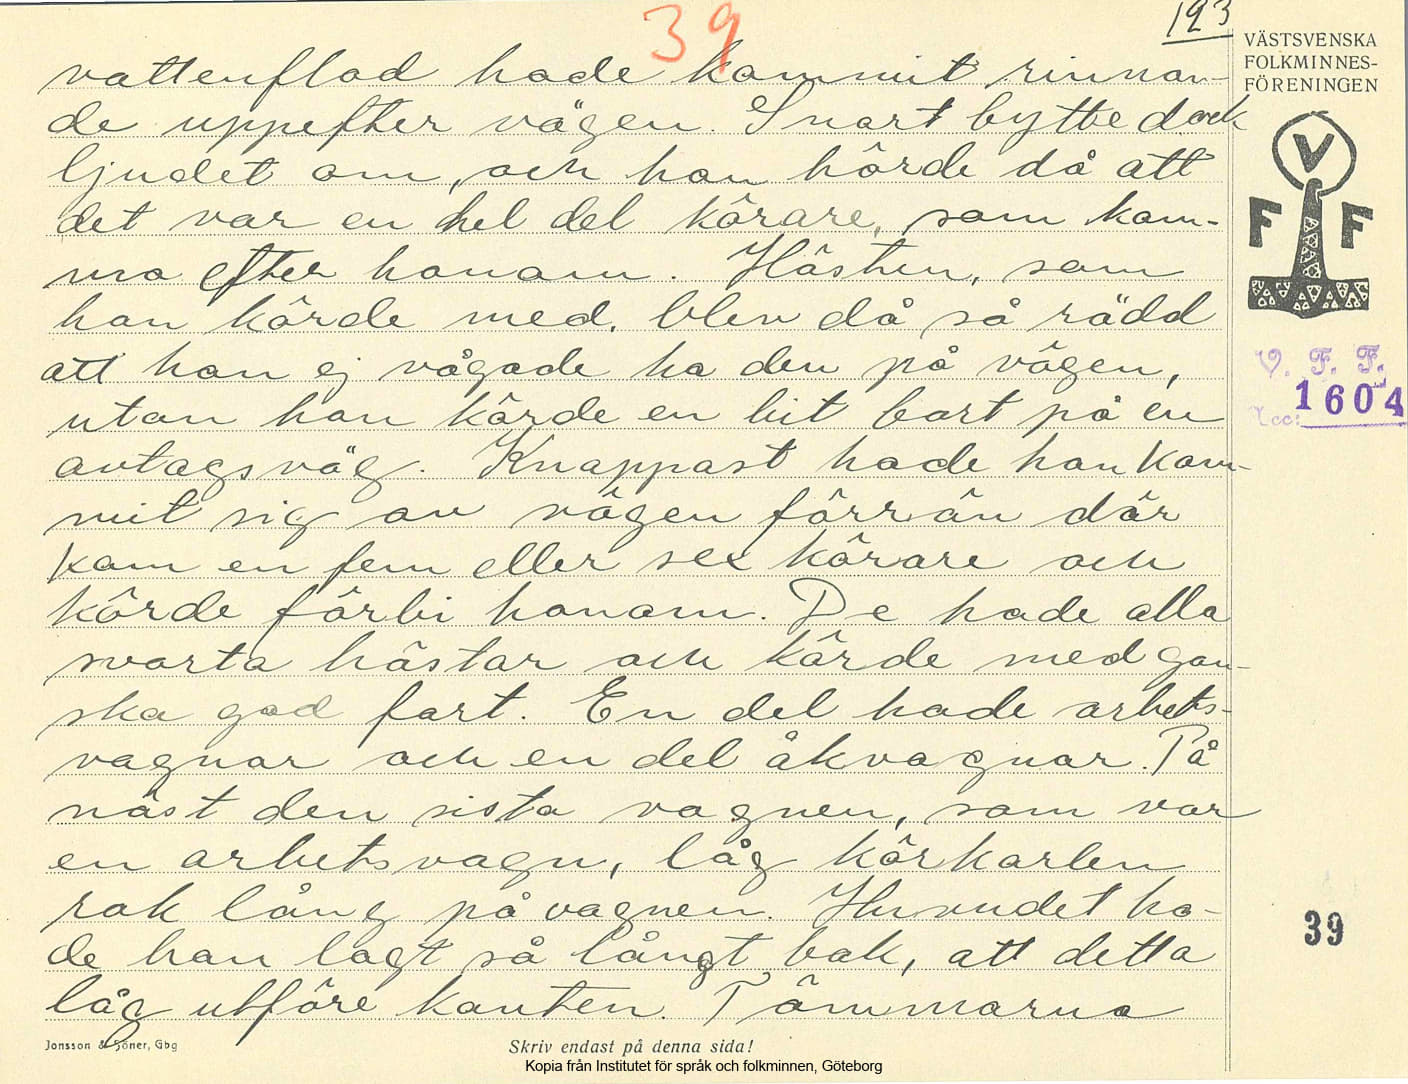 39
193
VÄSTSVENSKA
FOLKMINNES-
FÖRENINGEN
V
F F
V. F. F.
Acc: 1604
vattenflod hade kommit rinnan-
de uppefter vägen. Snart bytte dock
ljudet om, och han hörde då att
det var en hel del körare, som kom-
mo efter honom. Hästen, som
han körde med, blev då så rädd
att han ej vågade ha den på vägen,
utan han körde en bit bort på en
avtagsväg. Knappast hade han kom-
mit sig av vägen förrän där
kom en fem eller sex körare och
körde förbi honom. De hade alla
svarta hästar och körde med gan-
ska god fart. En del hade arbets-
vagnar och en del åkvagnar. På
näst den sista vagnen, som var
en arbetsvagn, låg körkarlen
rak lång på vagnen. Huvudet ha-
de han lagt så långt bak, att detta
låg utföre kanten. Tömmarna
39
Jonsson & Söner, Gbg
Skriv endast på denna sida!
Kopia från Institutet för språk och folkminnen, Göteborg